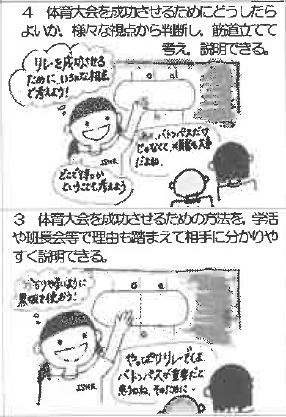 4 体育大会を成功させるためにどうしたら
よいか、様々な視点から判断し、筋道立てて
考え、説明できる。
リレーを成功させる
ために、いろんな視点
で考えよう!
バトンパスだけ
じゃなくて、
大事
だよね。
どこで
ということも考えよう
3 体育大会を成功させるための方法を、学活
や班長会等で理由も踏まえて相手に分かりや
すく説明できる。
分かりやすいように
黒板を使おう!
やっぱりリレーでは
バトンパスが重要だと
思うよね。そのために…